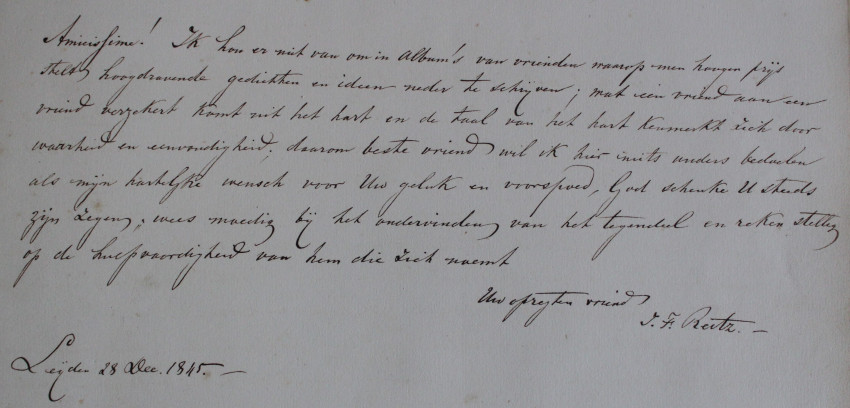 Amicissime! Ik hou er niet van om in Album's van vrienden waarop men hoogen prijs
stelt hoogdravende gedichten en ideen neder te schrijven; wat een vriend aan een
vriend verzekert komt uit het hart en de taal van het hart kenmerkt zich door
waarheid en eenvoudigheid; daarom beste vriend wil ik hier niets anders bedoelen
als mijn hartelijke wensch voor Uw geluk en voorspoed, God schenke U steeds
zijn zegen, wees moedig bij het ondervinden van het tegendeel en reken stellig
op de hulpvaardigheid van hem die zich noemt
Uw opregten vriend
J. F. Reitz. –
Leijden 28 Dec. 1845. –